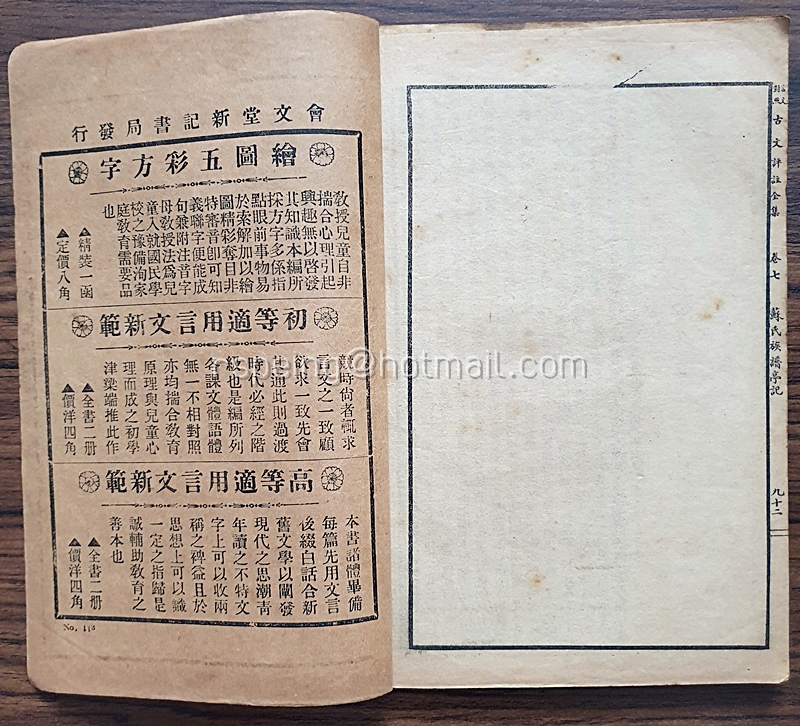 會文堂新記書局發行
繪圖五彩方字
敎授兒童自非
揣合心理引起
興趣無以啓發
其知識本編所
採方字多係指
點眼前事物易
於索解加以繪
圖精彩奪目非
特審音卽可知
義聯字便能成
句兼附注音字
母敎授法爲兒
童入就國民學
校之豫備洵家
庭敎育需要品
也
▲精裝一函
▲定價八角
初等適用言文新範
競時尙者輒求
言文之一致顧
欲求一致先會
其通此則過渡
時代必經之階
級也是編所列
各課文體語體
無一不相對照
亦均揣合敎育
原理與兒童心
理而成之初學
津梁端推此作
▲全書二册
▲價洋四角
高等適用言文新範
本書諸體畢備
每篇先用文言
後綴白話合新
舊文學以闡發
現代之思潮靑
年讀之不特文
字上可以收兩
稱之裨益且於
思想上可以識
一定之指歸是
誠輔助敎育之
善本也
▲全書二册
▲價洋四角
古文評註全集
卷七
蘇氏族譜亭記
九十二